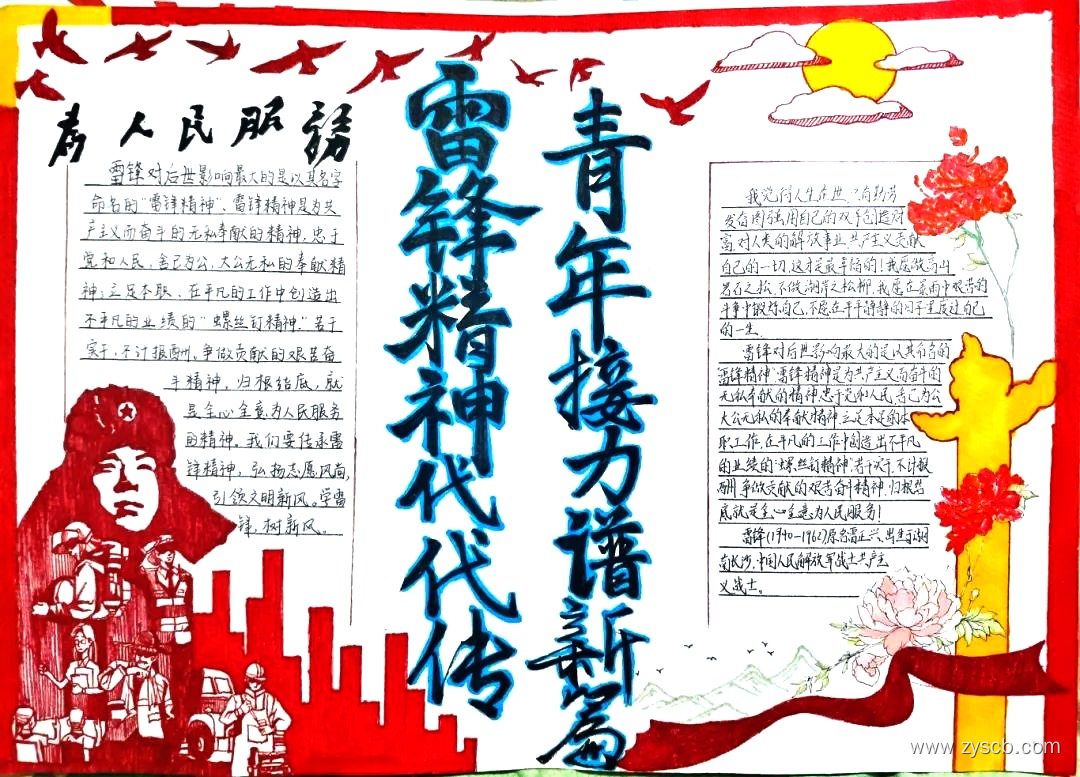 为人民服务
雷锋对后世影响最大的是以其名字
命名的“雷锋精神”、雷锋精神是为共
产主义而奋斗的无私奉献的精神,忠于
党和人民,舍己为公,大公无私的奉献精
神;立足本职、在平凡的工作中创造出
不平凡的业绩的“螺丝钉精神”.若干
实干,不计报酬,争做贡献的艰苦奋
斗精神,归根结底,就
是全心全意为人民服务
的精神。我们要传承雷
锋精神,弘扬志愿风尚,
引领文明新风。学雷
锋,树新风。
雷锋精神代代传
青年接力谱新篇
我觉得人生在世,只有勤劳
发奋图强,用自己的双手创造财
富,对人类的解放事业共产主义贡献
自己的一切,这才是最幸福的!我愿做高山
岩石之松,不做湖岸之松柳,我愿在暴雨中艰苦的
斗争中锻炼自己,不愿在平平静静的日子里度过自己
的一生
雷锋对后世影响最大的是以其命名的
“雷锋精神”雷锋精神是为共产主义而奋斗的
无私奉献的精神,忠于党和人民,舍己为公
大公无私的奉献精神,立足本足的本
职工作,在平凡的工作中创造出不平凡
的业绩的“螺丝钉精神”,若干实干,不计报
酬,争做文献的艰苦奋斗精神,归根结
底就是全心全意为人民服务!
雷锋(1940—1962)原名雷正兴,出生于湖
南长沙,中国人民解放军战士共产主
义战士。
www.zyscb.com